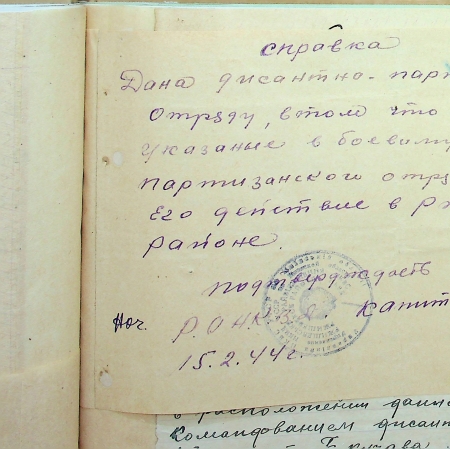 справка
Дана дисантно-парт
отряду, в том что
указаные в боевом
партизанского отря
Его действие в Рж
районе.
подтверждаеть
Нач. Р.О.Н.К.В.Д. капит
15.2.44г.
в расположении данн
командованием дисант